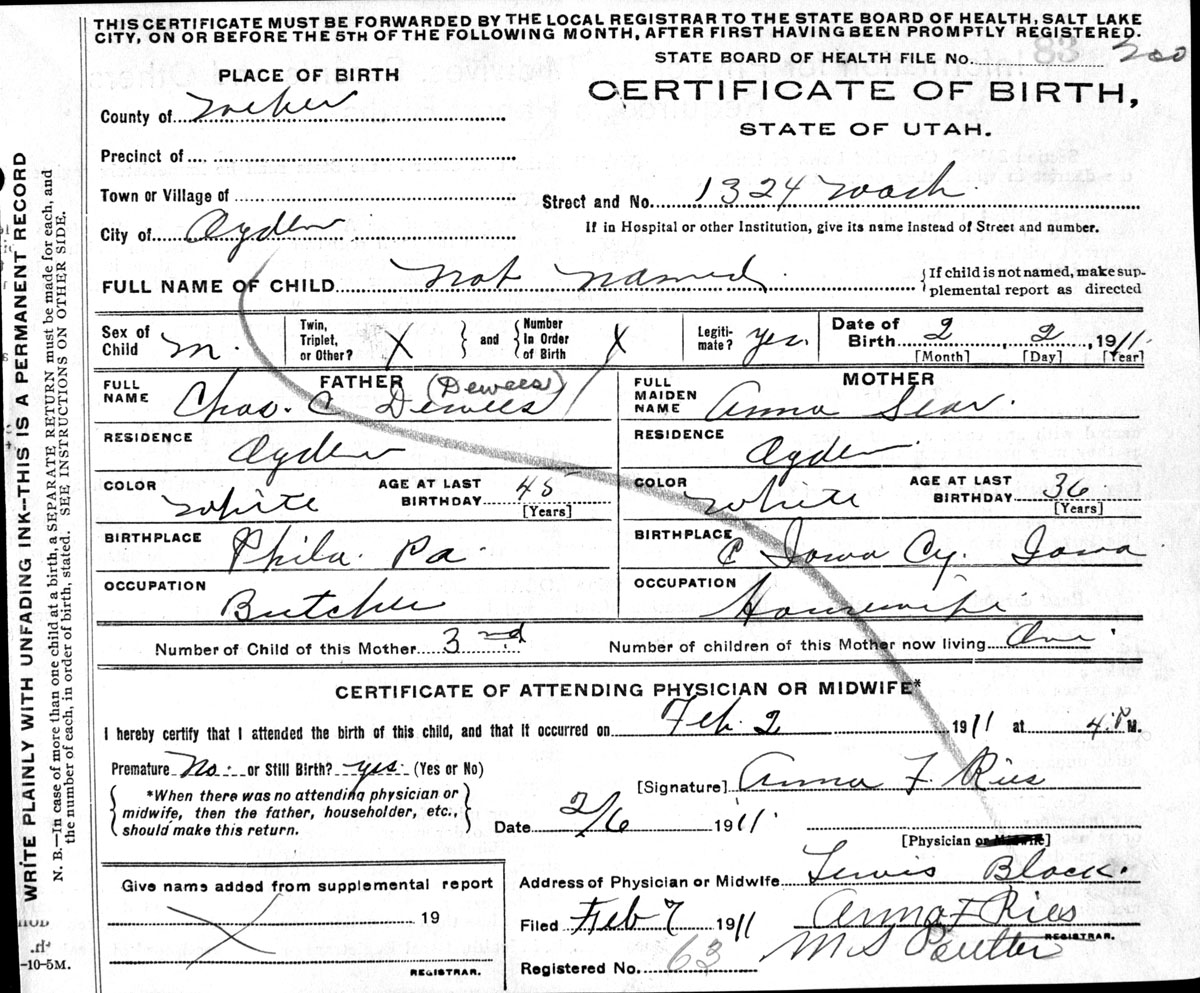 THIS CERTIFICATE MUST BE FORWARDED BY THE LOCAL REGISTRAR TO THE STATE BOARD OF HEALTH, SALT LAKE
CITY, ON OR BEFORE THE 5TH OF THE FOLLOWING MONTH, AFTER FIRST HAVING BEEN PROMPTLY REGISTERED.
STATE BOARD OF HEALTH FILE No. 83 200
PLACE OF BIRTH
CERTIFICATE OF BIRTH,
STATE OF UTAH.
County of Weber
Precinct of
Town or Village of
Street and No. 1324 Wash.
City of Ogden
If in Hospital or other Institution, give its name instead of Street and number.
FULL NAME OF CHILD not named
{If child is not named, make sup-
plemental report as directed
Sex of Child M.
Twin, Triplet, or Other? X } and { Number In Order of Birth X
Legiti- mate? yes.
Date of Birth 2, 2, 1911.
[Month] [Day] [Year]
FATHER
FULL NAME Chas. C Dewees (Dewees)
MOTHER
FULL MAIDEN NAME Anna Sear.
RESIDENCE Ogden
RESIDENCE Ogden
COLOR White AGE AT LAST BIRTHDAY 45 [Years]
COLOR White AGE AT LAST BIRTHDAY 36 [Years]
BIRTHPLACE Phila. Pa.
BIRTHPLACE Iowa Cy. Iowa
OCCUPATION Butcher
OCCUPATION Housewife
Number of Child of this Mother 3rd
Number of children of this Mother now living One
CERTIFICATE OF ATTENDING PHYSICIAN OR MIDWIFE*
I hereby certify that I attended the birth of this child, and that it occurred on Feb. 2 1911 at 4 P M.
Premature No. or Still Birth? yes. (Yes or No)
{ *When there was no attending physician or
midwife, then the father, householder, etc.,
should make this return. }
[Signature] Anna F. Ries
Date 2/6 1911.
[Physician or Midwife]
Address of Physician or Midwife Lewis Block.
Give name added from supplemental report
19
REGISTRAR.
Filed Feb 7 1911 Anna F Ries
REGISTRAR.
Registered No. 63 M S
WRITE PLAINLY WITH UNFADING INK--THIS IS A PERMANENT RECORD
N. B.—In case of more than one child at a birth, a SEPARATE RETURN must be made for each, and
the number of each, in order of birth, stated. SEE INSTRUCTIONS ON OTHER SIDE.
-10-5M.